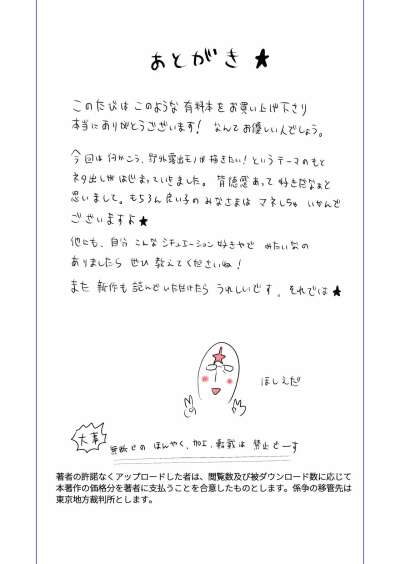 あとがき★
このたびは このような 有料本をお買い上げ下さり
本当にありがとうございます! なんてお優しい人でしょう。
今回は何かこう、野外露出モノが描きたい! というテーマのもと
ネタ出しがはじまっていきました。背徳感あって好きだなぁと
思いまして。もちろん良い子のみなさまは マネしちゃ いかんで
ございますよ★
他にも、自分 こんな シチュエーション好きやで みたいなの
ありましたら ぜひ 教えてくださいね!
また 新作も 読んでいただけたら うれしいです。それでは★
ほしえだ
大事
無断での ほんやく、加工、転載は 禁止でーす
著者の許諾なくアップロードした者は、閲覧数及び被ダウンロード数に応じて
本著作の価格分を著者に支払うことを合意したものとします。係争の移管先は
東京地方裁判所とします。